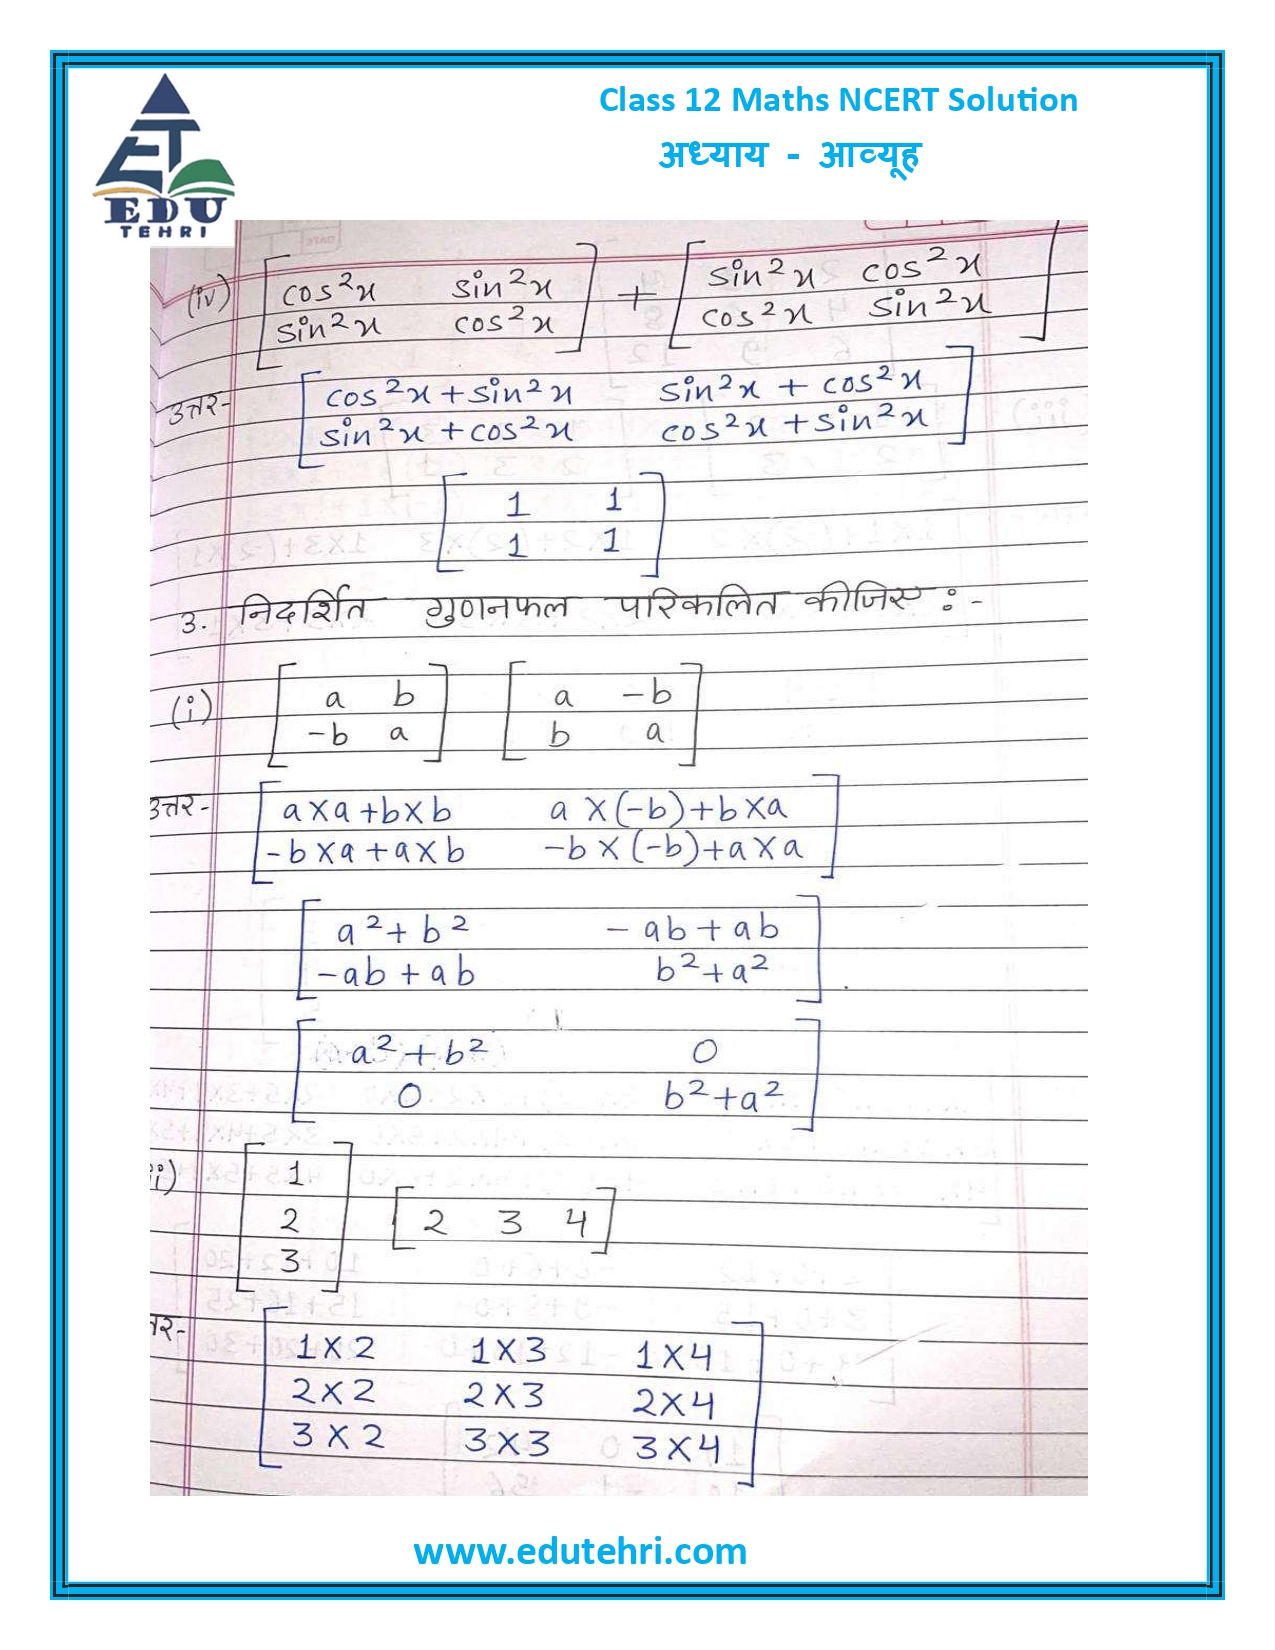 Class 12 Maths NCERT Solution
अध्याय - आव्यूह
EDU
TEHRI
(iv) [cos²x sin²x] + [sin²x cos²x]
[sin²x cos²x] [cos²x sin²x]
उत्तर- [cos²x+sin²x sin²x + cos²x]
[sin²x + cos²x cos²x + sin²x]
[1 1]
[1 1]
3. निदर्शित गुणनफल परिकलित कीजिए :-
(i) [a b] [a -b]
[-b a] [b a]
उत्तर- [a×a+b×b a×(-b)+b×a]
[-b×a+a×b -b×(-b)+a×a]
[a²+b² -ab+ab]
[-ab+ab b²+a²]
[a²+b² 0]
[0 b²+a²]
ii) [1]
[2] [2 3 4]
[3]
त्तर- [1×2 1×3 1×4]
[2×2 2×3 2×4]
[3×2 3×3 3×4]
www.edutehri.com